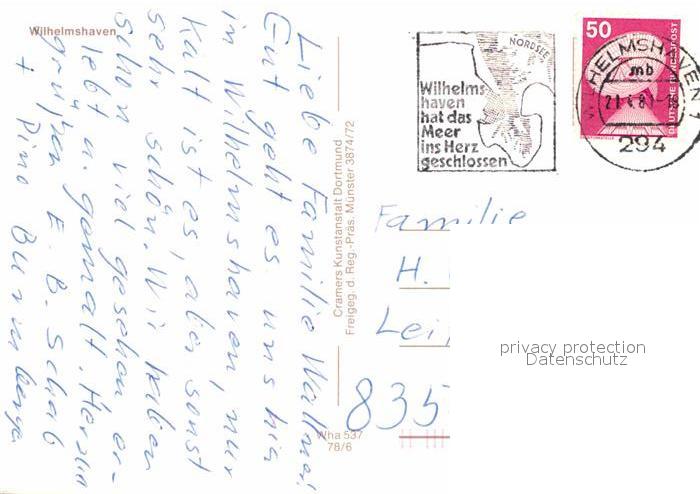 Wilhelmshaven
Liebe Familie
Gut geht es uns hier
in Wilhelmshaven, nur
kalt ist es, aber sonst
sehr schön. Wir haben
schon viel gesehen er-
lebt u. gemalt. Herzlich
grüßen E. B. Schab
+ Dino
Cramers Kunstanstalt Dortmund
Freigeg. d. Reg.-Präs. Münster 3874/72
Wha 537
78/6
NORDSEE
Wilhelms-
haven
hat das
Meer
ins Herz
geschlossen
50
DEUTSCHE BUNDESPOST
WILHELMSHAVEN 1
mb
294
Familie
H.
Lei
835
privacy protection
Datenschutz